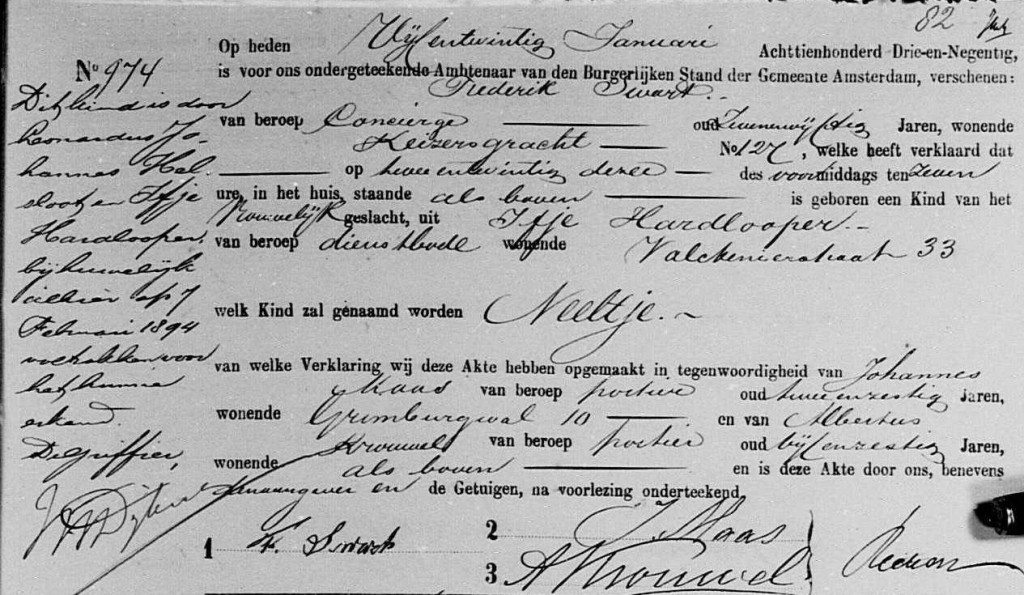 82
Op heden Vijfentwintig Januari Achttienhonderd Drie-en-Negentig,
No 974
is voor ons ondergeteekende Ambtenaar van den Burgerlijken Stand der Gemeente Amsterdam, verschenen:
Frederik Swart.
van beroep Concierge oud Zevenenvijftig Jaren, wonende
Keizersgracht No 127, welke heeft verklaard dat
op tweeentwintig dezer des voormiddags ten Zeven
ure, in het huis, staande als boven is geboren een Kind van het
Vrouwelijk geslacht, uit Itje Hardlooper.
van beroep dienstbode wonende Valckenierstraat 33
welk Kind zal genaamd worden Neeltje.
van welke Verklaring wij deze Akte hebben opgemaakt in tegenwoordigheid van Johannes
Maas van beroep portier oud tweeenzestig Jaren,
wonende Grimburgwal 10 en van Albertus
Krouwel van beroep portier oud vijfenzestig Jaren,
wonende als boven en is deze Akte door ons, benevens
den aangever en de Getuigen, na voorlezing onderteekend
1 F. Swart
2 J. Maas
3 A Krouwel
Dit kind is door
Leonardus Jo-
hannes Hel-
sloot en Itje
Hardlooper,
bij huwelijk
alhier op 7
Februari 1894
voltrokken voor
het hunne
erkend.
De Griffier,